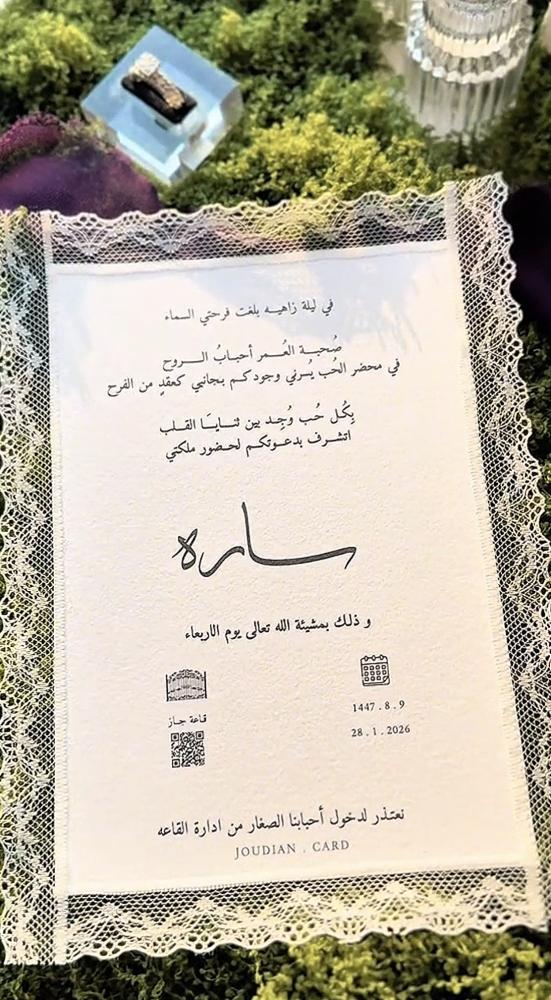 في ليلة زاهيـه بلغت فرحتي السماء
صُحبـة العُـمر أحبـابُ الـروح
في محضر الحُب يُسرني وجودكـم بجانبي كعقدٍ من الفرح
بِكُل حُب وُجِـد بين ثنـايـا القـلب
اتشرف بدعـوتكـم لحضـور ملكتي
سـاره
و ذلـك بمشيئة الله تعالى يوم الاربعاء
قاعة جـاز
1447 . 8 . 9
28 . 1 . 2026
نعتـذر لدخول أحبابنا الصغار من ادارة القاعه
JOUDIAN . CARD